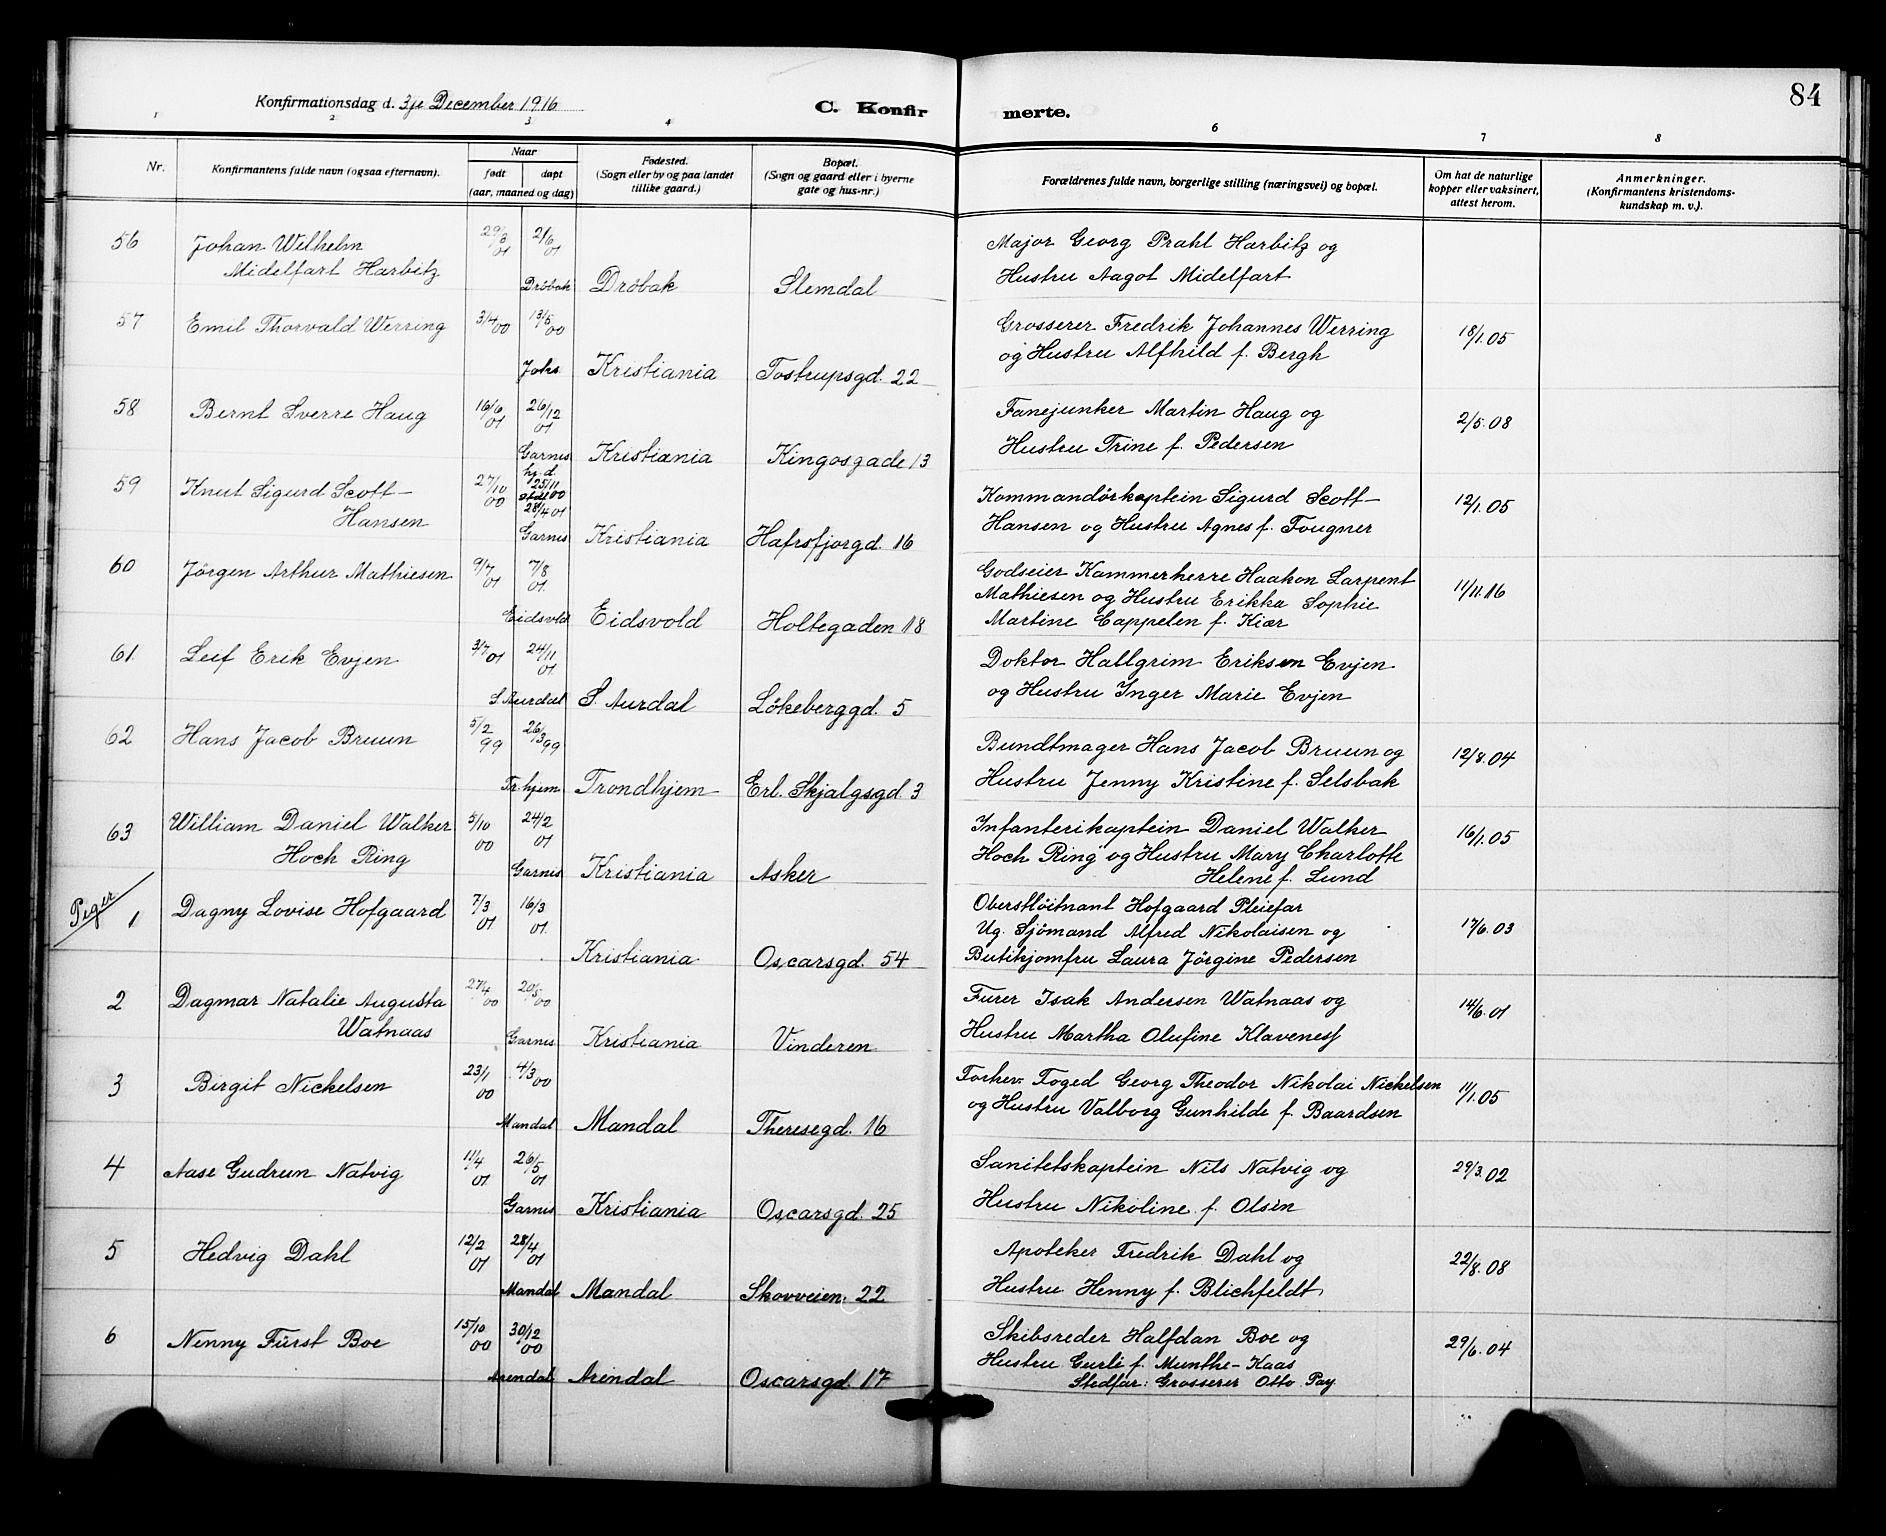 84
Konfirmationsdag d. 3je December 1916
C. Konfir merte.
1 2 3 4 6 7 8
Nr.
Konfirmantens fulde navn (ogsaa efternavn).
Naar
født døpt
(aar, maaned og dag)
Fødested.
(Sogn eller by og paa landet
tillike gaard.)
Bopæl.
(Sogn og gaard eller i byerne
gate og hus-nr.)
Forældrenes fulde navn, borgerlige stilling (næringsvei) og bopæl.
Om hat de naturlige
kopper eller vaksinert,
attest herom.
Anmerkninger.
(Konfirmantens kristendoms-
kundskap m. v.).
56 Johan Wilhelm 29/3 01 2/6 01 Major Georg Prahl Harbitz og
Midelfart Harbitz Dröbak Dröbak Slemdal Hustru Aagot Midelfart
57 Emil Thorvald Werring 3/4 00 13/5 00 Grosserer Fredrik Johannes Werring 18/1.05
Johs Kristiania Tostrupsgd. 22 og Hustru Alfhild f. Bergh
58 Bernt Sverre Haug 16/6 01 26/12 01 Fanejunker Martin Haug og 2/5.08
Garnis Kristiania Kingosgade 13 Hustru Trine f. Pedersen
59 Knut Sigurd Scott- 27/10 00 hj.d. 25/11 00 28/4 01 Kommandörkaptein Sigurd Scott- 12/1.05
Hansen Garnis Kristiania Hafrsfjorgd. 16 Hansen og Hustru Agnes f. Fougner
60 Jörgen Arthur Mathiesen 9/7 01 7/8 01. Godseier Kammerherre Haakon Larpent 11/11.16
Mathiesen og Hustru Erikka Sophie
Eidsvold Eidsvold Holtegaden 18 Martine Cappelen f. Kiær
61. Leif Erik Evjen 3/7 01 24/11 01. Doktor Hallgrim Eriksen Evjen
S. Aurdal S. Aurdal Lökeberggd. 5 og Hustru Inger Marie Evjen
62 Hans Jacob Bruun 5/2 99 26/3 99 Bundtmager Hans Jacob Bruun og 12/8.04
Tr.hjem Trondhjem Erl. Skjalgsgd. 3 Hustru Jenny Kristine f. Selsbak
63 William Daniel Walker 5/10 00 24/2 01 Infanterikaptein Daniel Walker 16/1.05
Hoch Ring Hoch Ring og Hustru Mary Charlotte
Garnis Kristiania Asker Helene f. Lund
Piger
1 Dagny Lovise Hofgaard 7/3 01 16/3 01. Oberstlöitnant Hofgaard Pleiefar
Ug. Sjömand Alfred Nikolaisen og 17/6.03
Kristiania. Oscarsgd. 54 Butikjomfru Laura Jörgine Pedersen
2 Dagmar Natalie Augusta 27/4 00 20/5 00 Furer Isak Andersen Watnaas og 14/6.01
Watnaas Garnis Kristiania Vinderen Hustru Martha Olufine Klaveness
3 Birgit Nickelsen 23/1 00 4/3 00 Forhev. Foged Georg Theodor Nikolai Nickelsen 11/1.05
Mandal Mandal Theresegd. 16 og Hustru Valborg Gunhilde f. Baardsen
4 Aase Gudrun Natvig 11/4 01. 26/5 01 Sanitetskaptein Nils Natvig og 29/3.02
Garnis Kristiania Oscarsgd. 25 Hustru Nikoline f. Olsen
5 Hedvig Dahl 12/2 01 28/4 01 Apoteker Fredrik Dahl og 22/8.08
Mandal Mandal Skovveien. 22 Hustru Henny f. Blichfeldt
6 Nenny Fürst Boe 15/10 00 30/12 00 Skibsreder Halfdan Boe og 29/6.04
Hustru Gurli f. Munthe-Kaas
Arendal Arendal Oscarsgd. 17 Stedfar: Grosserer Otto Pay